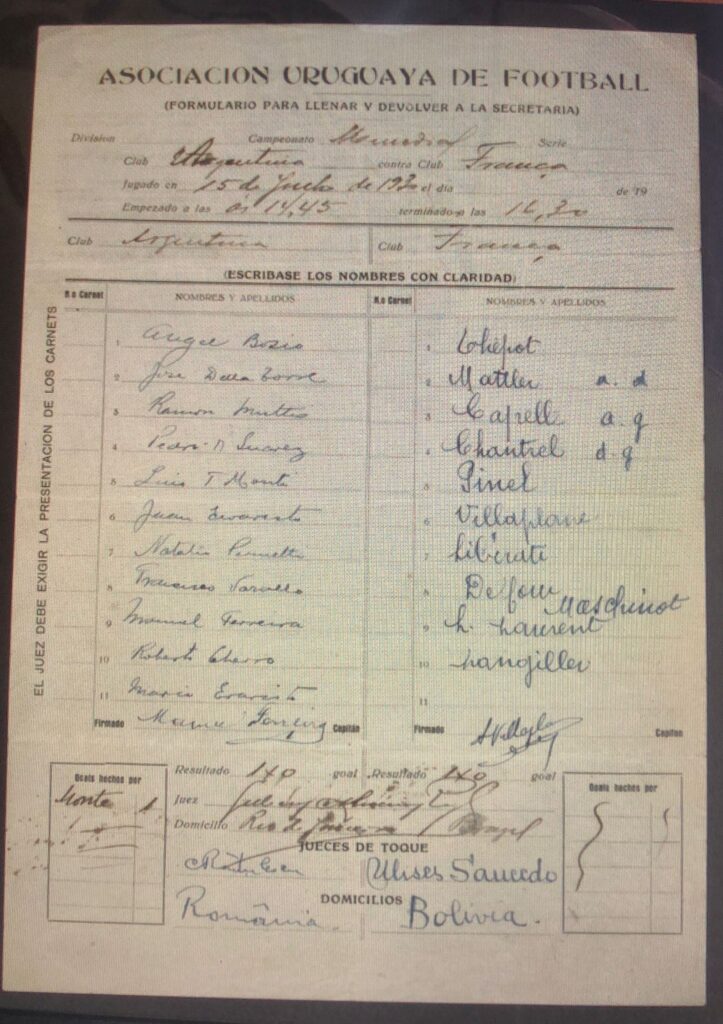 ASOCIACION URUGUAYA DE FOOTBALL
(FORMULARIO PARA LLENAR Y DEVOLVER A LA SECRETARIA)
Division Campeonato Mundial Serie
Club Argentina contra Club França
Jugado en 15 de Julho de 1930 el dia de 19
Empezado a las ás 14,45 terminado a las 16,30
Club Argentina Club França
(ESCRIBASE LOS NOMBRES CON CLARIDAD)
N.o Carnet NOMBRES Y APELLIDOS N.o Carnet NOMBRES Y APELLIDOS
EL JUEZ DEBE EXIGIR LA PRESENTACION DE LOS CARNETS
1 Angel Bosio 1 Thépot
2 José Della Torre 2 Mattler a. d
3 Ramon Muttis 3 Capelle a. g
4 Pedro Suarez 4 Chantrel d. g
5 Luis Monti 5 Pinel
6 Juan Evaristo 6 Villaplane
7 Natalio Perinetti 7 Libérati
8 Francisco Varallo 8 Delfour
Maschinot
9 Manuel Ferreira 9 L. Laurent
10 Roberto Cherro 10 Langiller
11 Mario Evaristo 11
Firmado Manuel Ferreira Capitán Firmado AVillaplane Capitan
Resultado 1x0 goal Resultado 1x0 goal
Goals hechos por Goals hechos por
Monte 1
Juez
Domicilio Rio de Janeiro Brazil
JUECES DE TOQUE
Ulises Saucedo
DOMICILIOS
România. Bolivia.